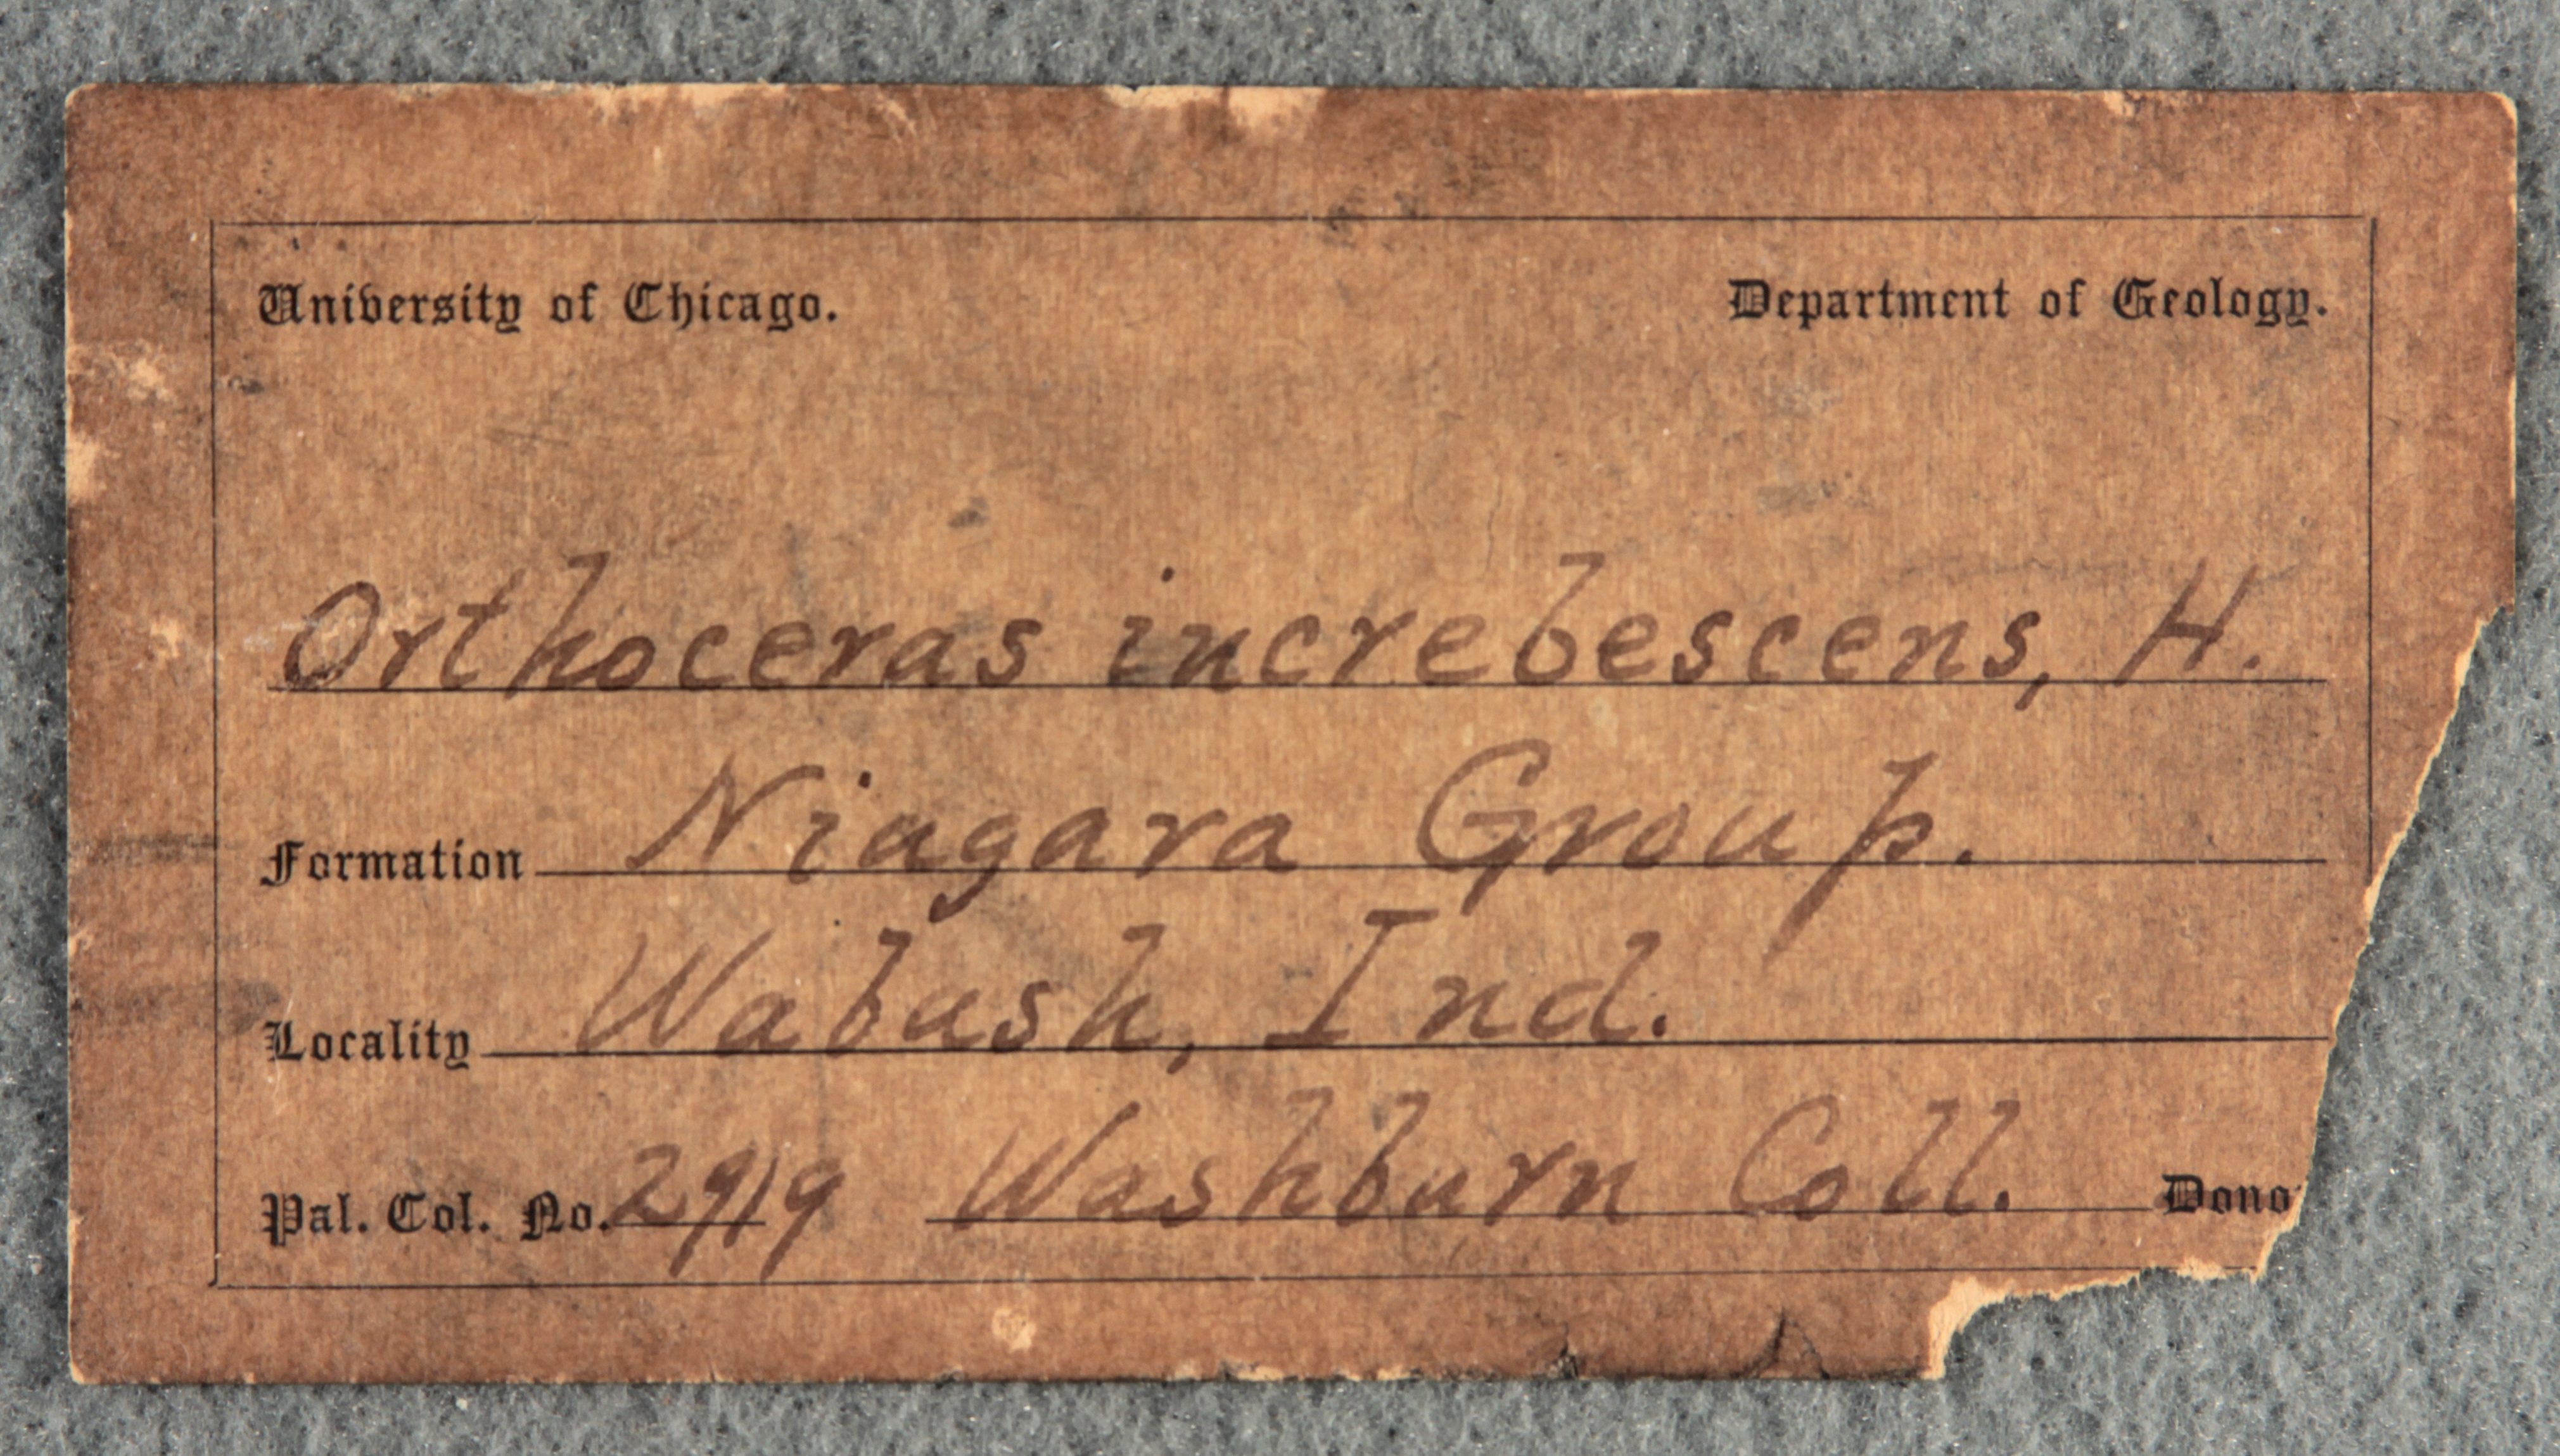 University of Chicago. Department of Geology.
Orthoceras increbescens, H.
Formation Niagara Group.
Locality Wabash, Ind.
Pal. Col. No. 2919 Washburn Coll. Dono